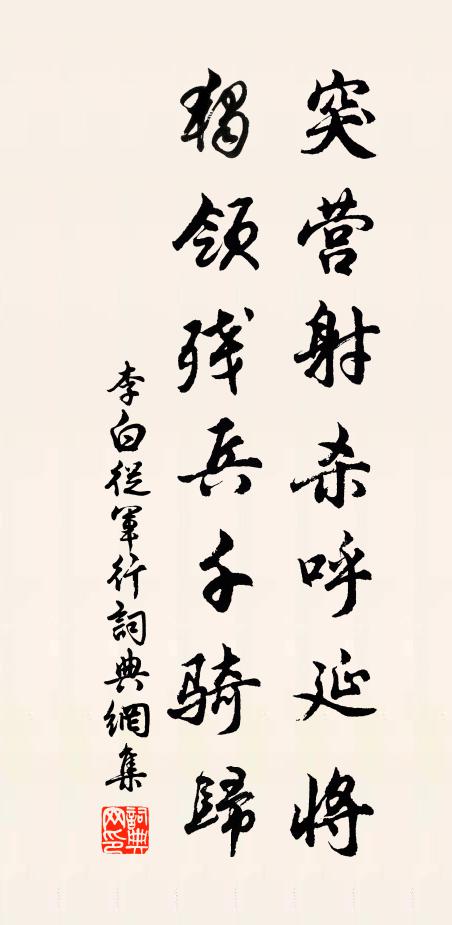 突营射杀呼延将
独领残兵千骑歸
李白從軍行詞典網集
詞典网印